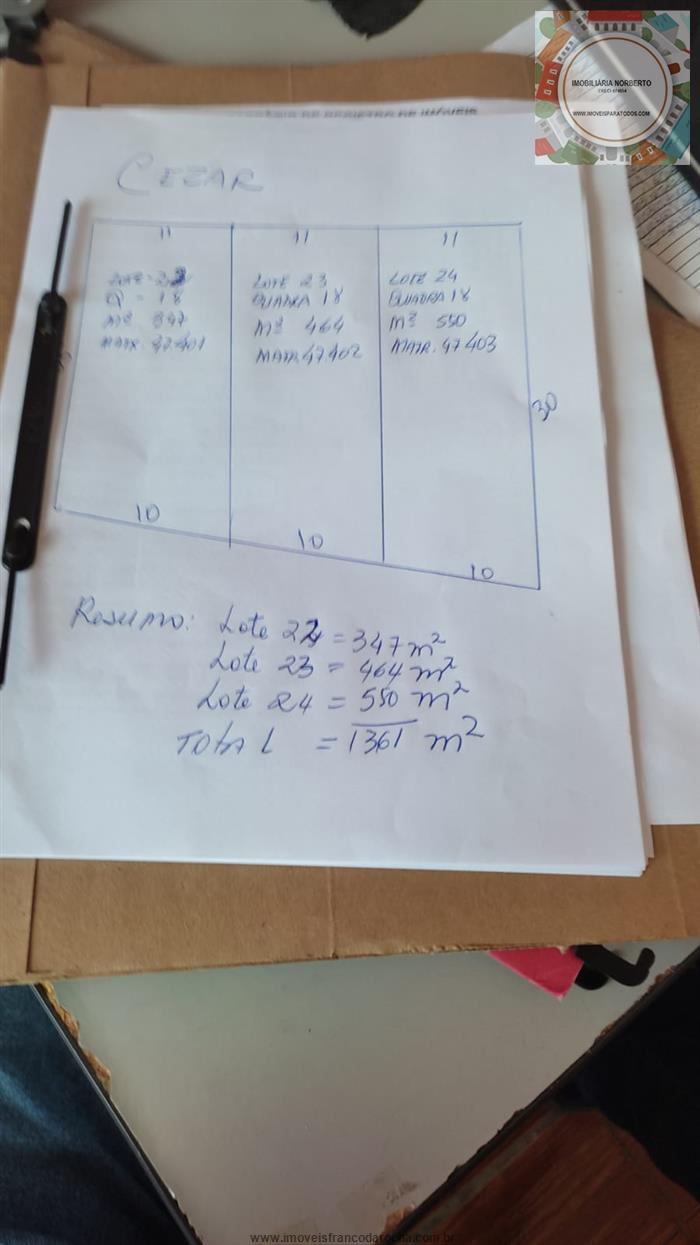 IMOBILIÁRIA NORBERTO
CRECI 074654
WWW.IMOVEISPARATODOS.COM
DE REGISTRO DE IMÓVEIS
CEZAR
11
11
11
LOTE = 22
Q = 18
M² 347
MATR. 47.401
LOTE 23
QUADRA 18
M² 464
MATR. 47.402
LOTE 24
QUADRA 18
M² 550
MATR. 47.403
30
10
10
10
RESUMO: Lote 22 = 347 m²
Lote 23 = 464 m²
Lote 24 = 550 m²
TOTAL = 1361 m²
www.imoveisfrancodarocha.com.br